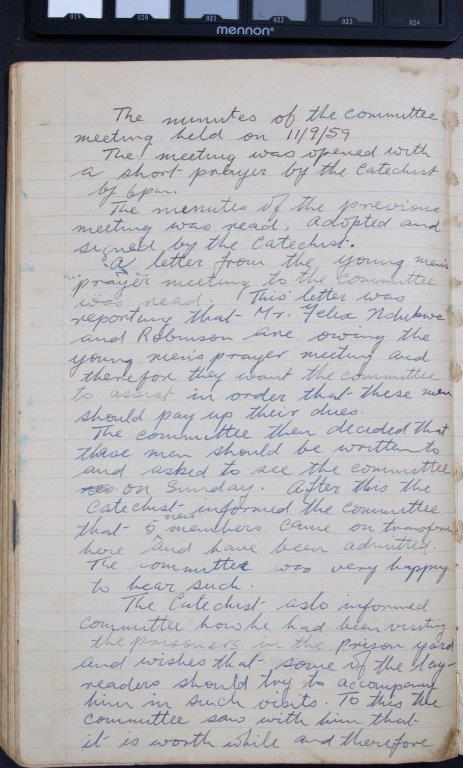 019 020 021 022 023 024
mennon®
The minutes of the committee
meeting held on 11/9/59
The meeting was opened with
a short prayer by the Catechist
by 6pm.
The menutes of the previous
meeting was read, adopted and
signed by the Catechist.
A letter from the young men's
prayer meeting to the committee
was read. This letter was
reporting that Mr. Felix Ndukwe
and Robinson are owing the
young men's prayer meeting and
therefore they want the committee
to assist in order that these men
should pay up their dues.
The committee then decided that
these men should be written to
and asked to see the committee
on Sunday. After this the
Catechist informed the committee
that 5 new members came on transfer
here and have been admitted.
The committee was very happy
to hear such.
The Catechist aslo informed
committee how he had been visiting
the prisoners in the prison yard
and wishes that some of the lay-
readers should try to accompany
him in such visits. To this the
committee saw with him that
it is worth while and therefore